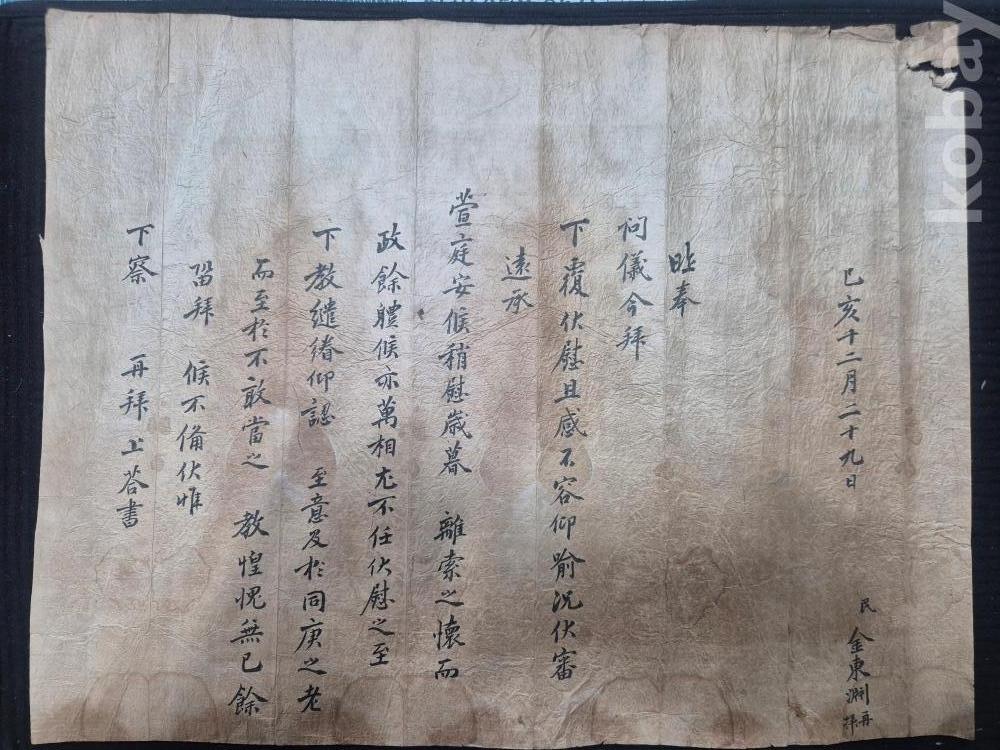 己亥十二月二十九日
民 金東淵 再拜
昨奉
问儀今拜
下覆伏慰且感不容仰喻況伏審
遠承
萱庭安候稍慰歲暮 離索之懷而
政餘軆候亦萬相尤不任伏慰之至
下教繾綣仰認 至意及於同庚之老
而至於不敢當之 教惶愧無已餘
留拜 候不備伏惟
下察 再拜上答書
kobay